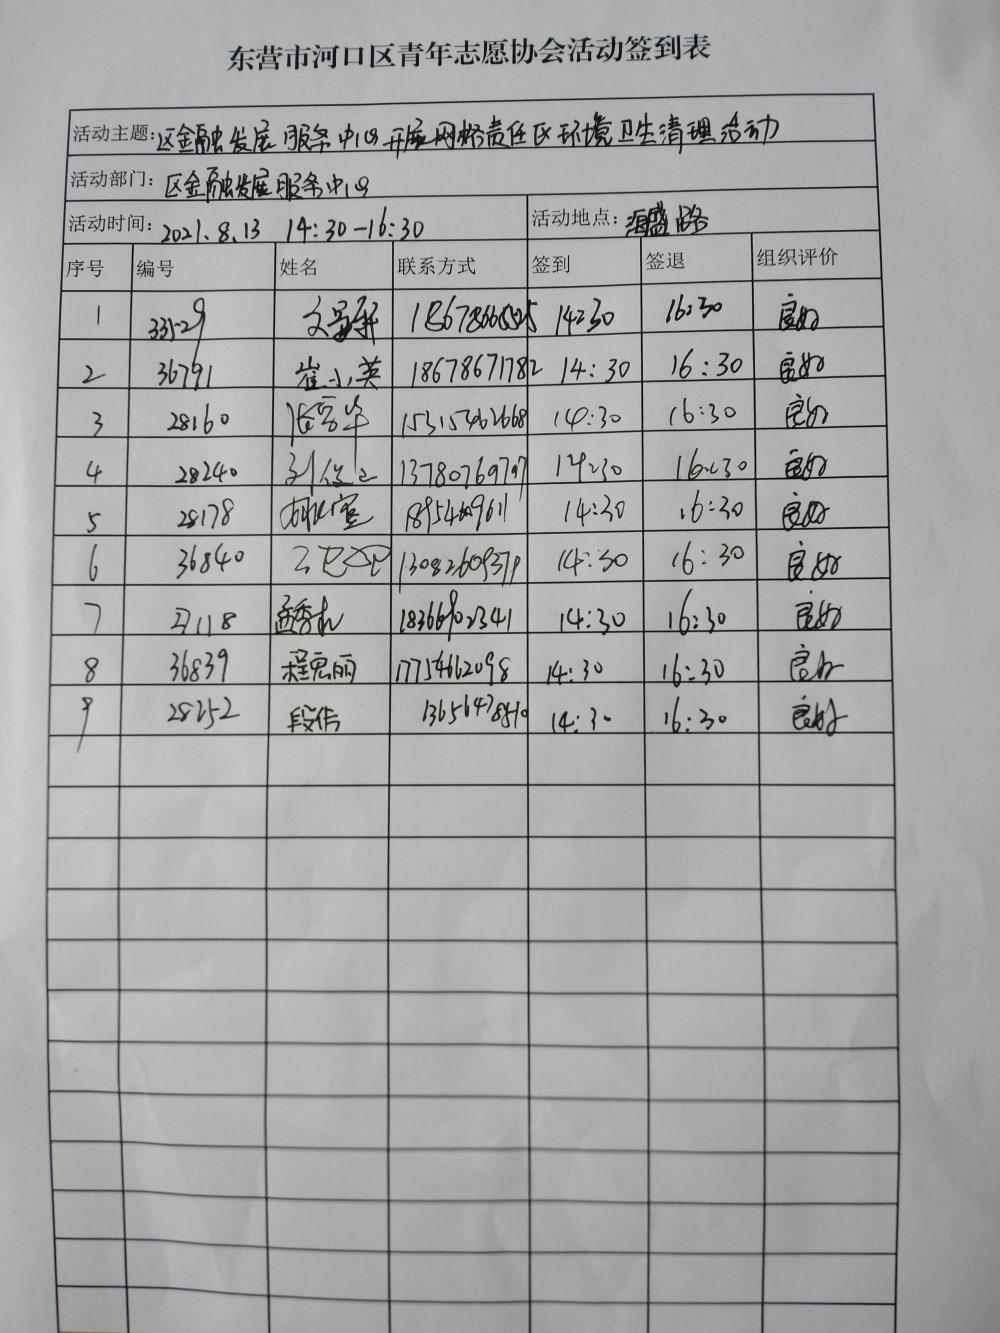 东营市河口区青年志愿协会活动签到表
活动主题:区金融发展服务中心开展网格责任区环境卫生清理活动
活动部门:区金融发展服务中心
活动时间:2021.8.13 14:30-16:30 活动地点:海盛路
序号 编号 姓名 联系方式 签到 签退 组织评价
1 14:30 16:30 良好
2 36791 崔小英 18678671782 14:30 16:30 良好
3 28160 15315462668 14:30 16:30 良好
4 28240 13780769797 14:30 16:30 良好
5 28178 14:30 16:30 良好
6 36840 14:30 16:30 良好
7 孟秀礼 18366902341 14:30 16:30 良好
8 36839 程宏丽 17754662098 14:30 16:30 良好
9 28252 段伟 14:30 16:30 良好